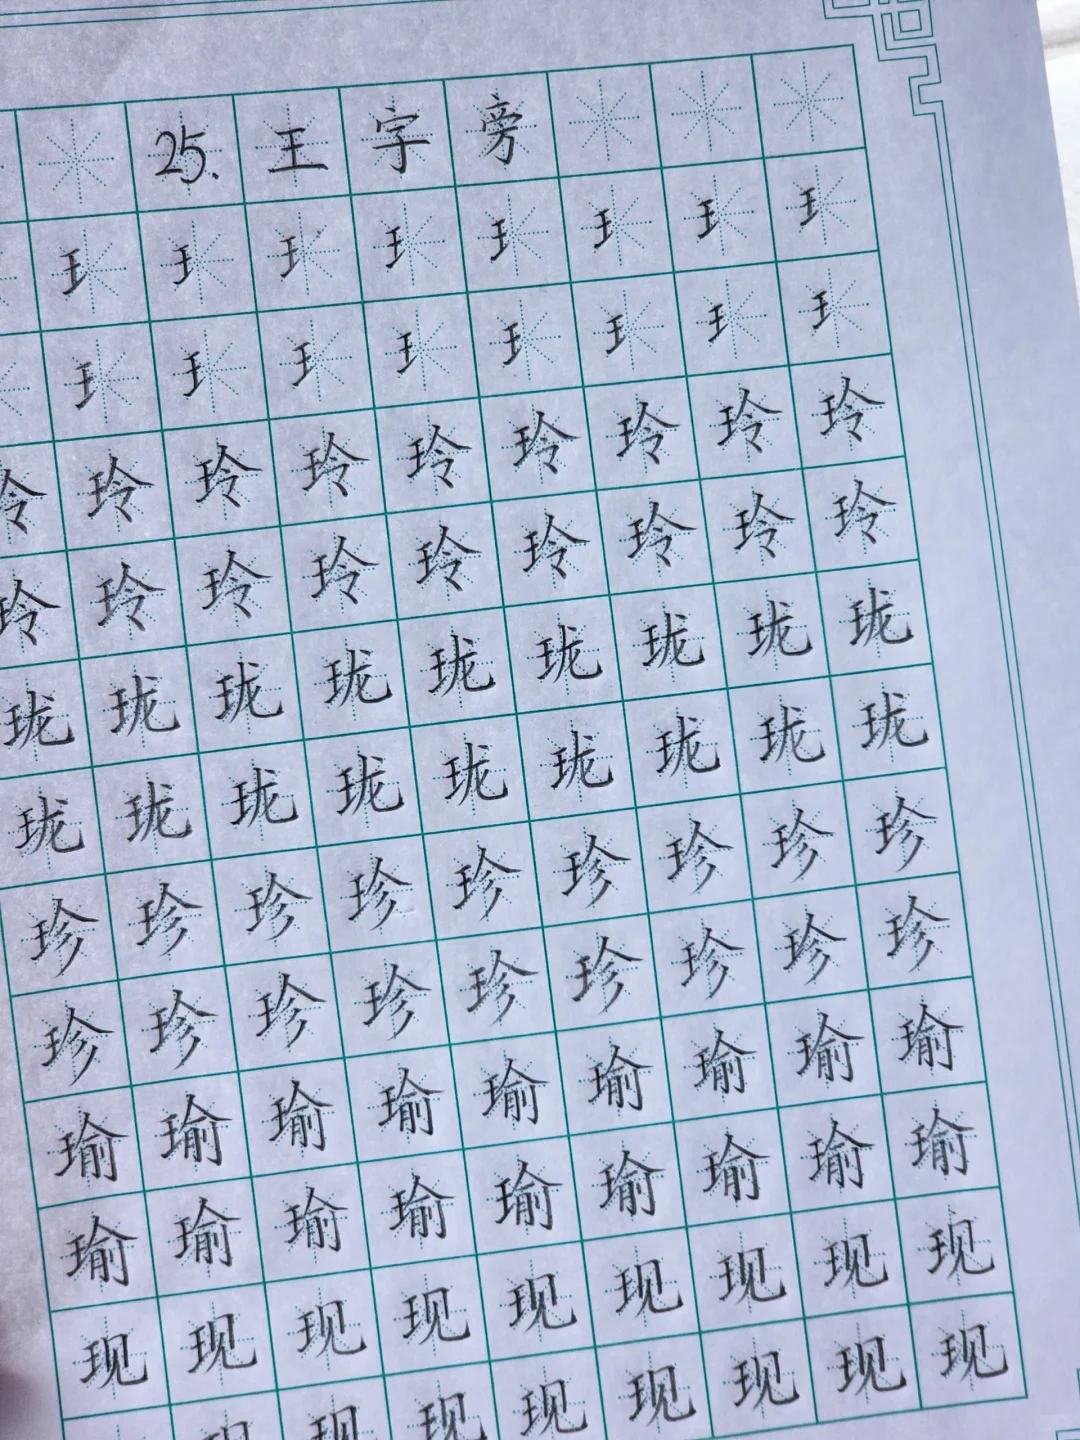 25. 王字旁
⺩⺩⺩⺩⺩⺩⺩⺩
⺩⺩⺩⺩⺩⺩⺩⺩
玲玲玲玲玲玲玲玲玲
玲玲玲玲玲玲玲玲玲
珑珑珑珑珑珑珑珑珑
珑珑珑珑珑珑珑珑珑
珍珍珍珍珍珍珍珍珍
珍珍珍珍珍珍珍珍珍
瑜瑜瑜瑜瑜瑜瑜瑜瑜
瑜瑜瑜瑜瑜瑜瑜瑜瑜
现现现现现现现现现
现现现现现现现现